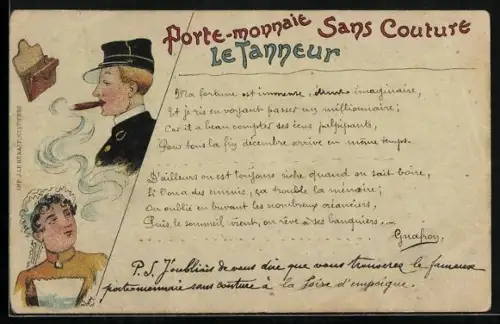 Porte-monnaie Sans Couture
Le Tanneur
Ma fortune est immense, imaginaire,
Et je ris en voyant passer un millionnaire;
Car il a beau compter ses écus palpitants,
Pour tous la fin décembre arrive en même temps.
D'ailleurs on est toujours riche quand on sait boire,
Si l'on a des ennuis, ça trouble la mémoire;
On oublie en buvant les nombreux créanciers,
Puis le sommeil vient, on rêve à ses banquiers...
Gnafron.
P.S. J'oubliais de vous dire que vous trouverez le fameux
portemonnaie sans couture à la
IMP. J. LE HÉNAFF, ST-ETIENNE